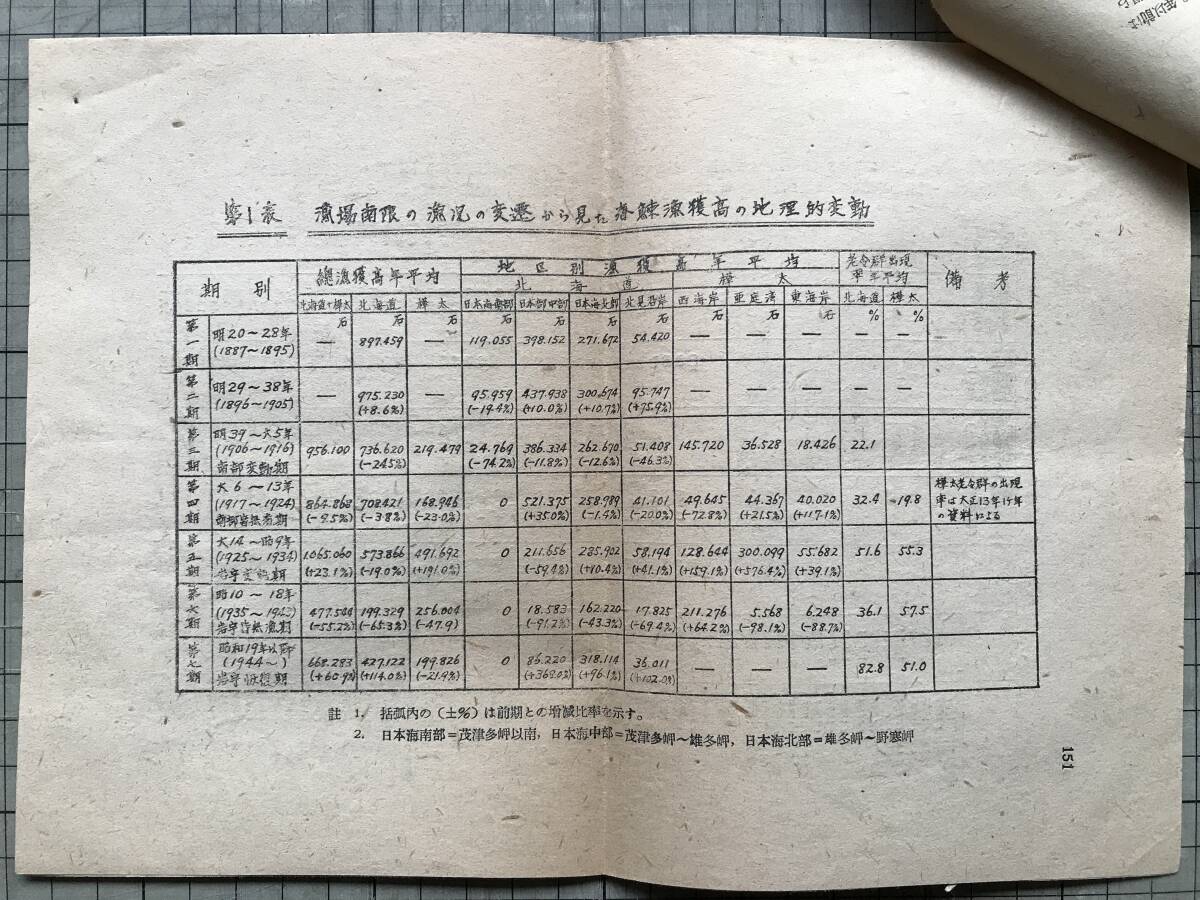 年以前は
第1表 漁場南限の漁況の変遷から見た春鰊漁獲高の地理的変動
期別 總漁獲高年平均 地区別漁獲高年平均 老令群出現率年平均 備考
北海道 樺太
北海道+樺太 北海道 樺太 日本海南部 日本海中部 日本海北部 北見沿岸 西海岸 亜庭湾 東海岸 北海道 樺太
石 石 石 石 石 石 石 石 石 石 % %
第一期 明20～28年 (1887～1895) — 897.459 — 119.055 398.152 271.672 54.420 — — — — —
第二期 明29～38年 (1896～1905) — 975.230 (+8.6%) — 95.959 (-19.4%) 437.938 (+10.0%) 300.674 (+10.7%) 95.747 (+75.9%) — — — — —
第三期 明39～大5年 (1906～1916) 南部変動期 956.100 736.620 (-24.5%) 219.479 24.769 (-74.2%) 386.334 (-11.8%) 262.670 (-12.6%) 51.408 (-46.3%) 145.720 36.528 18.426 22.1
第四期 大6～13年 (1917～1924) 南部皆無漁期 864.868 (-9.5%) 708.421 (-3.8%) 168.946 (-23.0%) 0 521.375 (+35.0%) 258.989 (-1.4%) 41.101 (-20.0%) 49.645 (-72.8%) 44.367 (+21.5%) 40.020 (+117.1%) 32.4 19.8 樺太老令群の出現率は大正13年1ヶ年の資料による
第五期 大14～昭9年 (1925～1934) 岩宇変動期 1.065.060 (+23.1%) 573.866 (-19.0%) 491.692 (+191.0%) 0 211.656 (-59.4%) 285.902 (+10.4%) 58.194 (+41.1%) 128.644 (+159.1%) 300.099 (+576.4%) 55.682 (+39.1%) 51.6 55.3
第六期 昭10～18年 (1935～1943) 岩宇皆無漁期 477.544 (-55.2%) 199.329 (-65.3%) 256.004 (-47.9) 0 18.583 (-91.2%) 162.220 (-43.3%) 17.825 (-69.4%) 211.276 (+64.2%) 5.568 (-98.1%) 6.248 (-88.7%) 36.1 57.5
第七期 昭和19年以降 (1944～) 岩宇恢復期 668.283 (+60.9%) 427.122 (+114.0%) 199.826 (-21.9%) 0 86.220 318.114 (+96.1%) 36.011 (+102.0%) — — — 82.8 51.0
註 1. 括弧內の (±%) は前期との増減比率を示す。
2. 日本海南部=茂津多岬以南, 日本海中部=茂津多岬～雄冬岬, 日本海北部=雄冬岬～野寒岬
151